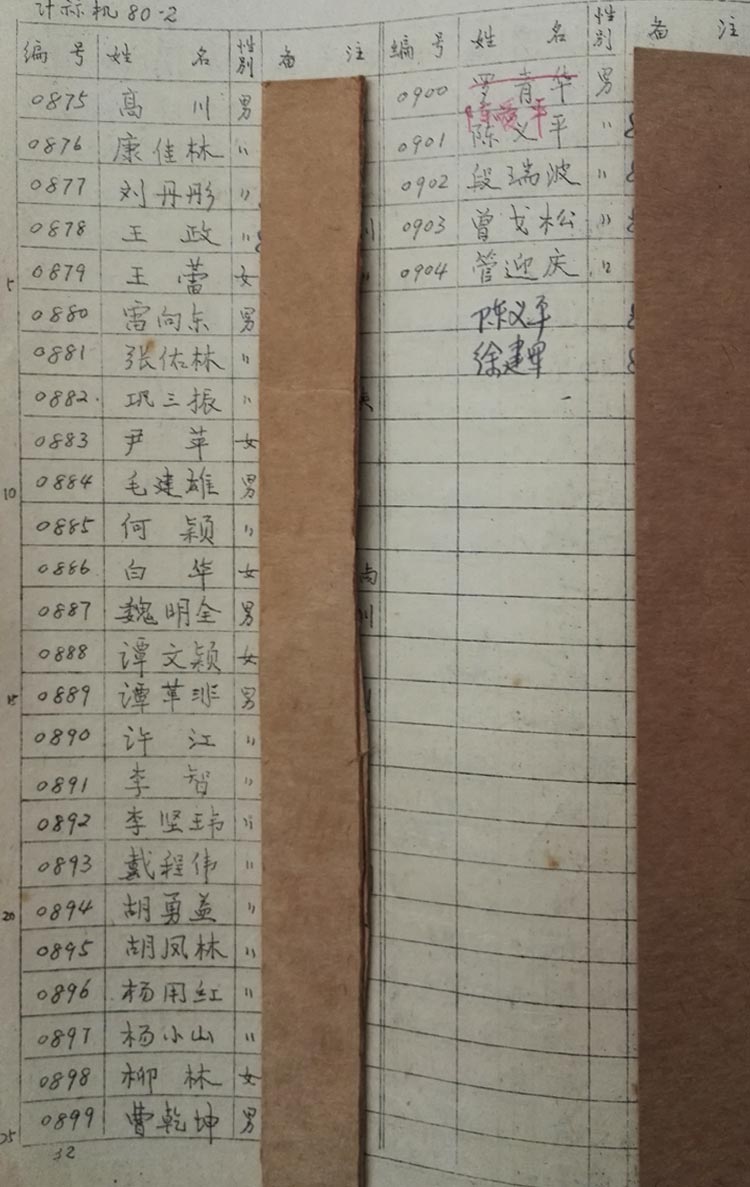 计标机 80-2
编号 姓名 性别 备注
0875 高川 男
0876 康佳林 〃
0877 刘丹彤 〃
0878 王政 〃
5 0879 王蕾 女
0880 雷向东 男
0881 张佑林 〃
0882 巩三振 〃
0883 尹苹 女
10 0884 毛建雄 男
0885 何颖 〃
0886 白华 女
0887 魏明全 男
0888 谭文颖 女
15 0889 谭革非 男
0890 许江 〃
0891 李智 〃
0892 李坚玮 〃
0893 戴程伟 〃
0894 胡勇益 〃
20 0895 胡凤林 〃
0896 杨用红 〃
0897 杨小山 〃
0898 柳林 女
25 0899 曹乾坤 男
32
编号 姓名 性别 备注
0900 罗青华 男
0901 陈义平 〃
0902 段瑞波 〃
0903 曾戈松 〃
0904 管迎庆 〃
陈义平
徐建军